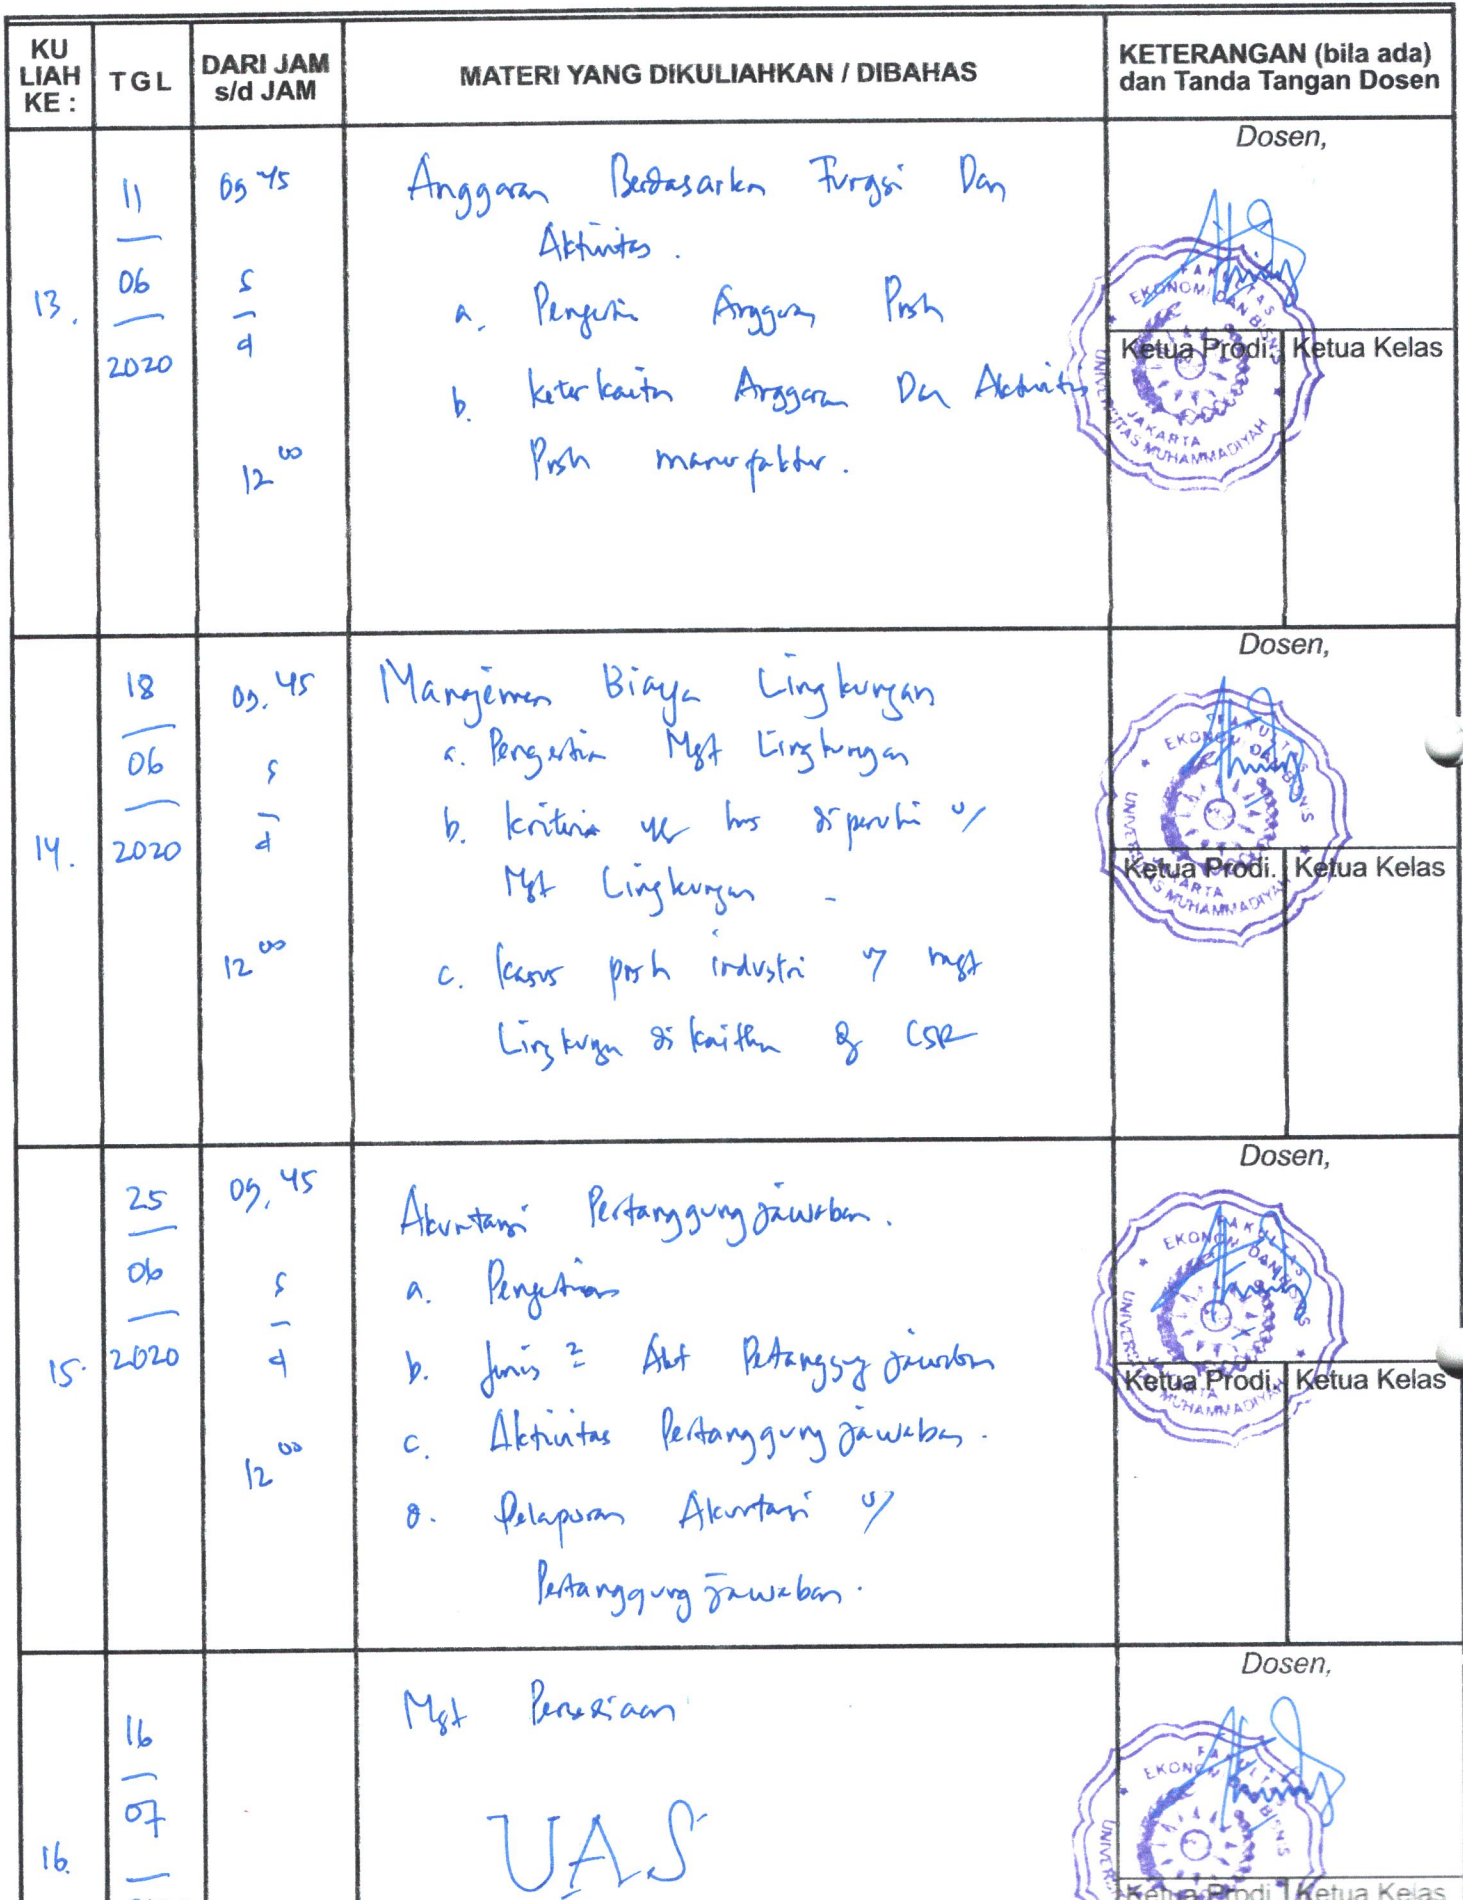 KU LIAH KE : TGL DARI JAM s/d JAM MATERI YANG DIKULIAHKAN / DIBAHAS KETERANGAN (bila ada) dan Tanda Tangan Dosen
13.
11
06
2020
09 45
s
d
12 00
Anggaran Berdasarkan Fungsi Dan
Aktivitas.
a. Pengertian Anggaran Prsh
b. keterkaitan Anggaran Dan Aktivitas
Prsh manufaktur.
Dosen,
Ketua Prodi. Ketua Kelas
FAKULTAS EKONOMI DAN BISNIS
UNIVERSITAS MUHAMMADIYAH
JAKARTA
14.
18
06
2020
09.45
s
d
12 00
Manajemen Biaya Lingkungan
a. Pengertian Mgt Lingkungan
b. kriteria yg hrs dipenuhi u/
Mgt Lingkungan
c. kasus prsh industri u/ mgt
Lingkungan dikaitkan dg CSR
Dosen,
Ketua Prodi. Ketua Kelas
FAKULTAS EKONOMI DAN BISNIS
UNIVERSITAS MUHAMMADIYAH
JAKARTA
15.
25
06
2020
09.45
s
d
12 00
Akuntansi Pertanggungjawaban.
a. Pengertian
b. Jenis 2 Akt Pertanggungjawaban
c. Aktivitas Pertanggungjawaban.
d. Pelaporan Akuntansi u/
Pertanggungjawaban.
Dosen,
Ketua Prodi. Ketua Kelas
FAKULTAS EKONOMI DAN BISNIS
UNIVERSITAS MUHAMMADIYAH
JAKARTA
16.
16
07
Mgt Persediaan
UAS
Dosen,
Ketua Prodi. Ketua Kelas
FAKULTAS EKONOMI DAN BISNIS